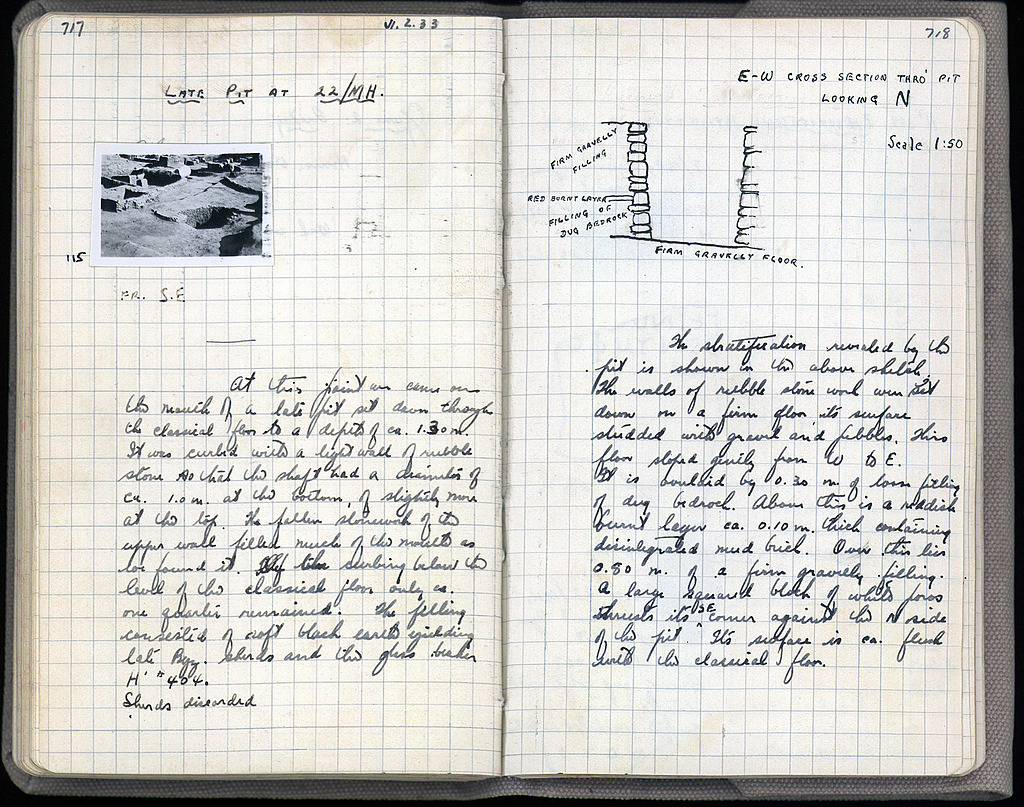 717
VI. 2. 33
LATE PIT AT 22/MH.
115
FR. S.E
At this point we came on
the mouth of a late pit set down through
the classical floor to a depth of ca. 1.30 m.
It was curbed with a light wall of rubble
stone so that the shaft had a diameter of
ca. 1.0 m. at the bottom, of slightly more
at the top. The fallen stonework of the
upper wall filled much of the mouth as
we found it. Of the curbing below the
level of the classical floor only ca.
one quarter remained. The filling
consisted of soft black earth yielding
late Byz. sherds and the glass beaker
H' # 404.
Sherds discarded
718
E-W CROSS SECTION THRO' PIT
LOOKING N
Scale 1:50
FIRM GRAVELLY
FILLING
RED BURNT LAYER
FILLING OF
DUG BEDROCK
FIRM GRAVELLY FLOOR.
The stratification revealed by the
pit is shown in the above sketch.
The walls of rubble stone work were set
down on a firm floor its surface
studded with gravel and pebbles. This
floor sloped gently from W to E.
It is overlaid by 0.30 m of loose filling
of dug bedrock. Above this is a reddish
burnt layer ca. 0.10 m. thick containing
disintegrated mud brick. Over this lies
0.80 m. of a firm gravelly filling.
A large squared block of white poros
thrusts its SE corner against the N side
of the pit. Its surface is ca. flush
with the classical floor.